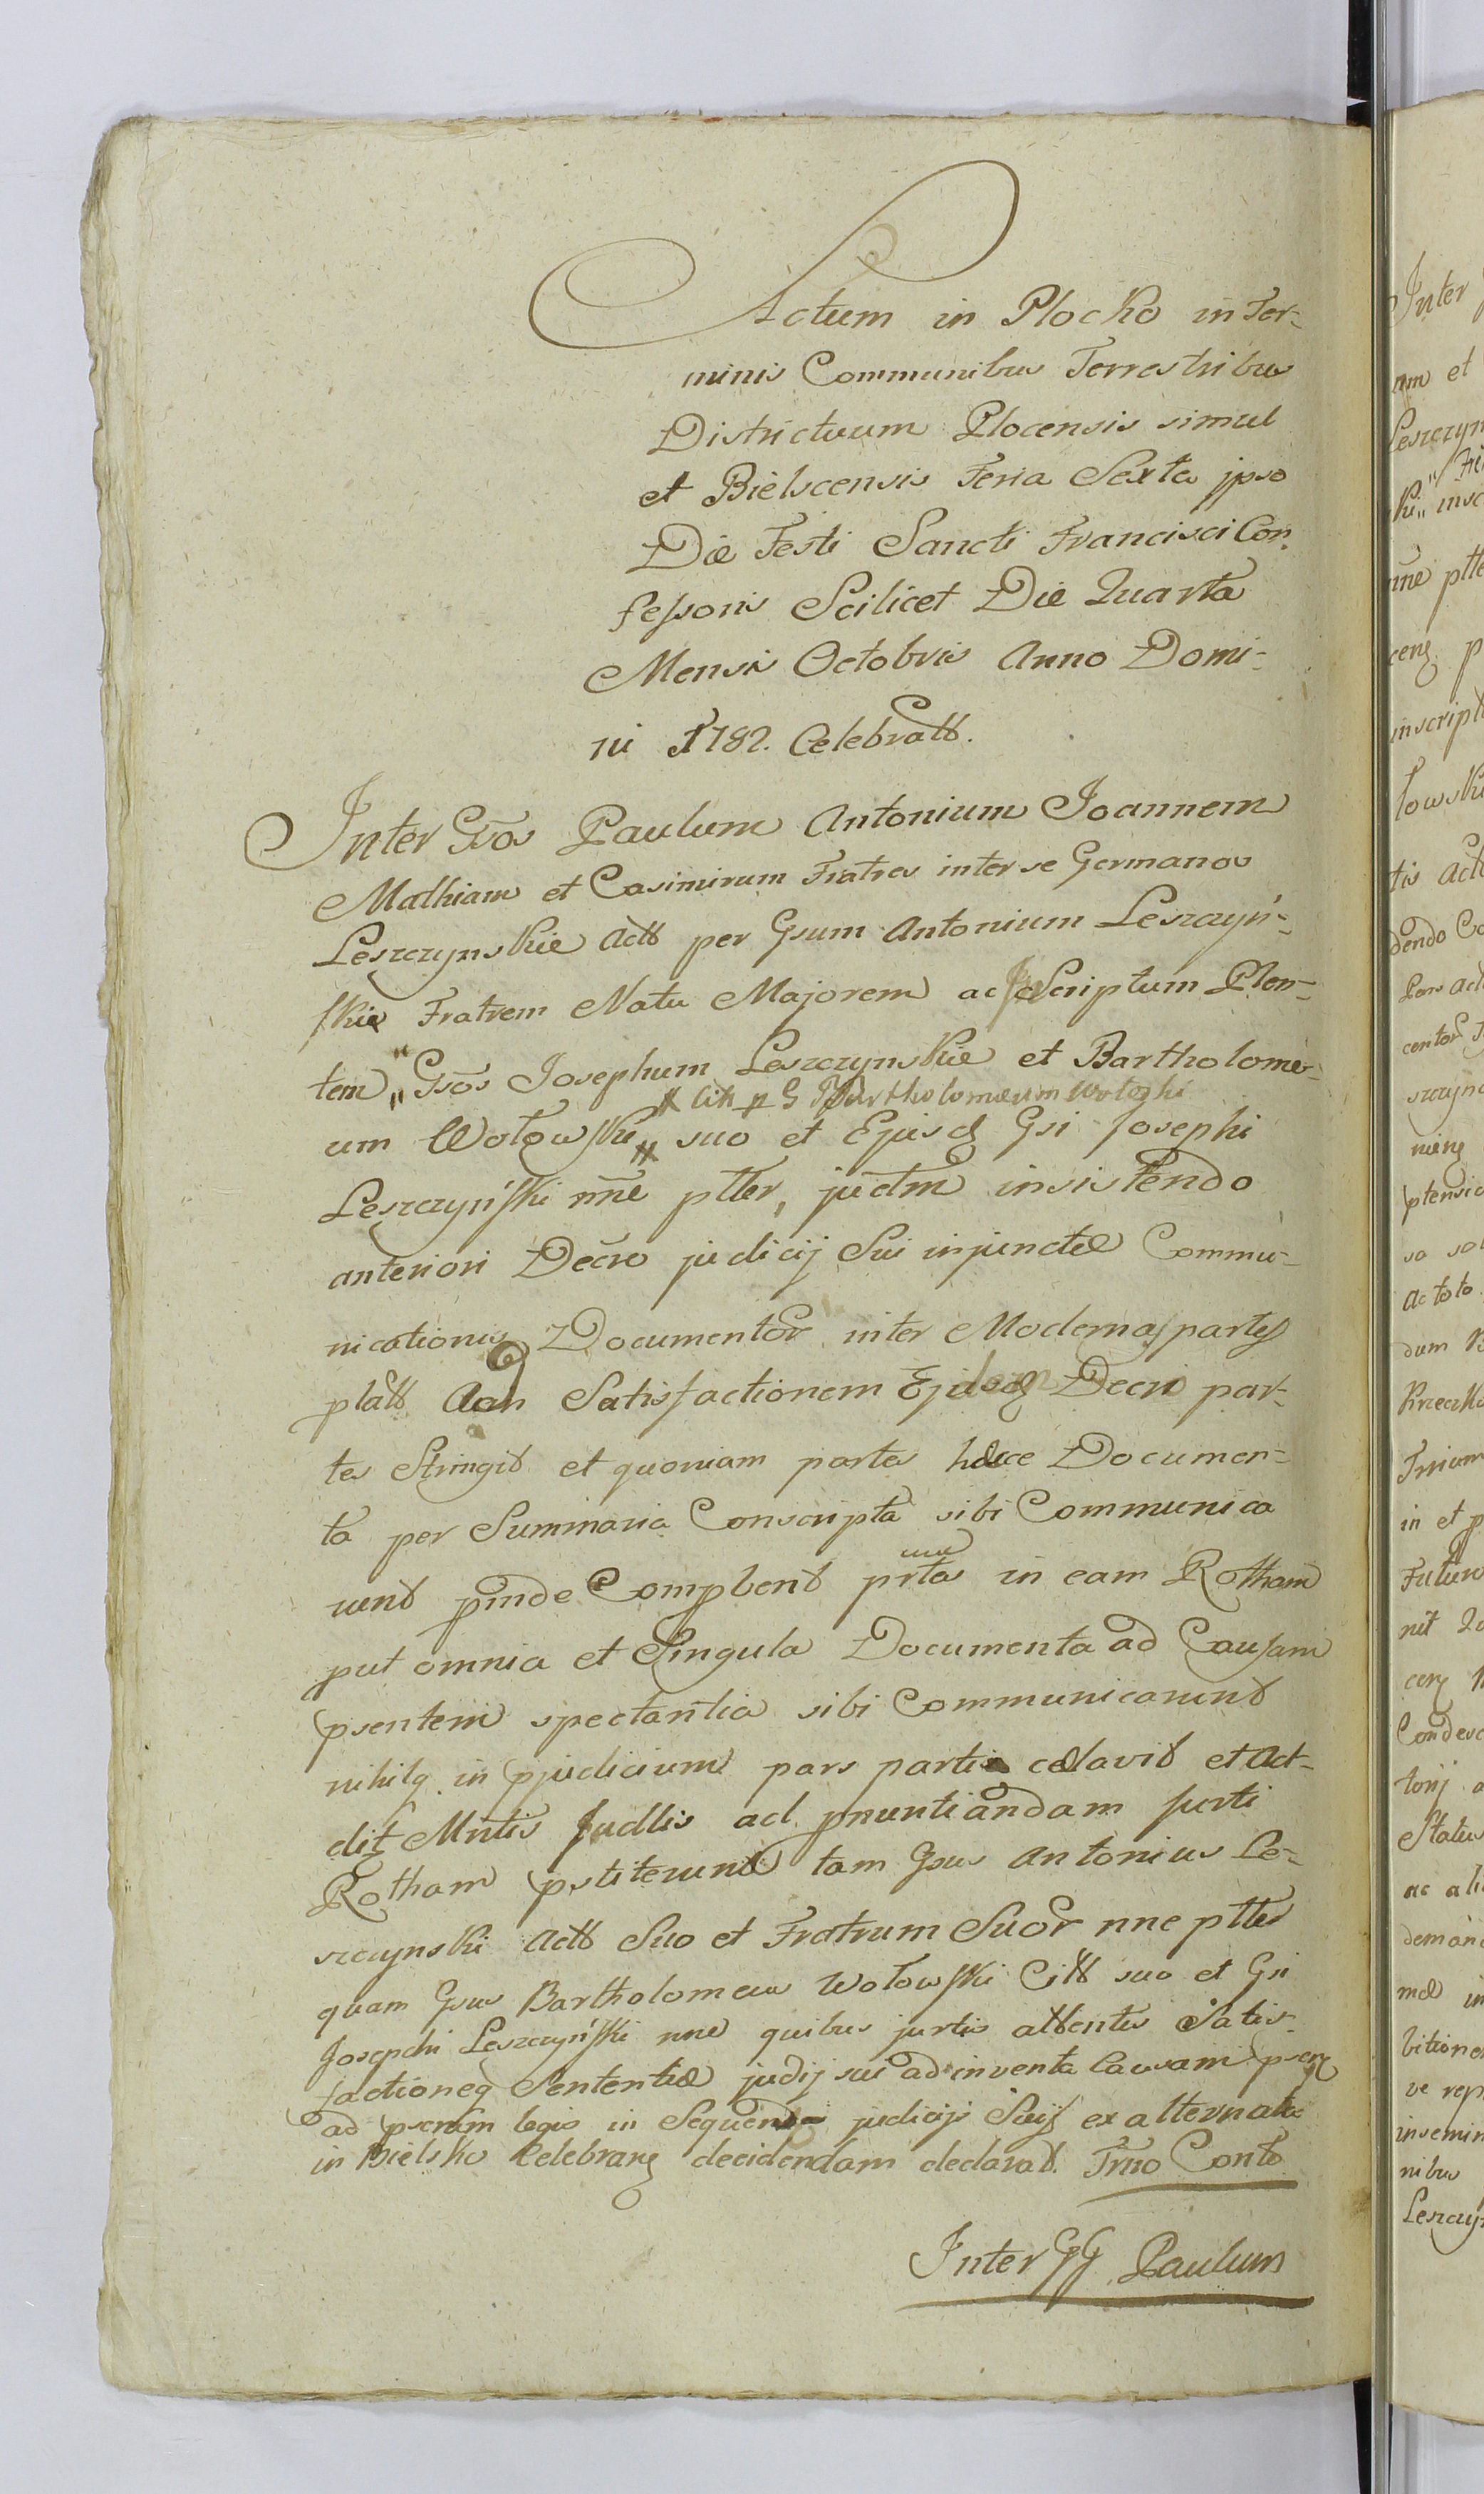 Actum in Plocko in Ter-
minis Communibus Terrestribus
Districtuum Plocensis simul
et Bielscensis Feria Sexta jpso
Die Festi Sancti Francisci Con-
fessoris Scilicet Die Quarta
Mensis Octobris Anno Domi-
ni 1782. Celebratt.
Inter Gsos Paulum Antonium Joannem
Mathiam et Casimirum Fratres inter se Germanos
Leszczynskie Actt per Gsum Antonium Leszczyń-
skie Fratrem Natu Majorem ac Scriptum Plen-
tem „ Gsos Josephum Leszczynskie et Bartholome-
Citt p G Bartholomæum Wołoski
um Wołowski suo et Ejusq Gsi Josephi
Leszczyński nne ptter, judm insistendo
anteriori Decro judicij Sui injunctæ Commu-
nicationis Documentor inter Modernas partes
platt Satisfactionem Decri par-
tes Stringit et quoniam partes hæce Documen-
ta per Summaria Conscripta sibi Communica
runt pinde Complent prtas in eam Rotham
put omnia et Singula Documenta ad Causam
psentem spectantia sibi Communicarunt
nihilq in pjudicium pars partis cælavit et Act-
diţ Mntis Judlis ad pnuntiandam jurti
Rotham pstiterunt tam Gsus Antonius Le-
szczynski Actt Suo et Fratrum Suor nne ptter
quam Gsus Bartholomeus Wołowski Citt suo et Gsi
Josephi Leszczyński nne quibus jurtis attentis Satis-
factioneq Sententiæ judij sui adinventa Causam psenţ
ad pscrum legis in Sequend judicijs Suis ex alternata
in Bielsko Celebranţ decidendam declarat. Trno Conto
Inter GG Paulum
Inter
um et
Leszczyn
nne ptte
inscript
łowski
tis Act
dendo Co
Pars act
centor
szczyns
ptensio
so sol
Ac toto
dum
in et p
Futur
nit
Condesc
torij a
Status
ac ali
deman
mæ in
bitione
ve rep
insemin
nibus
Leszczy